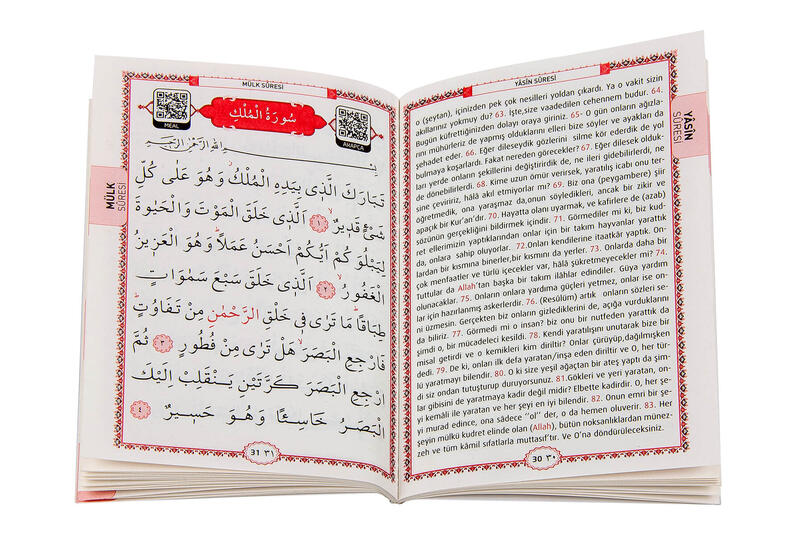 YÂSİN SÛRESİ
o (şeytan), içinizden pek çok nesilleri yoldan çıkardı. Ya o vakit sizin
akıllarınız yokmuy du? 63. İşte,size vaadedilen cehennem budur. 64.
bugün küfrettiğinizden dolayı oraya giriniz. 65- o gün onların ağızla-
rını mühürleriz de yapmış olduklarını elleri bize söyler ve ayakları da
şehadet eder. 66. Eğer dileseydik gözlerini silme kör ederdik de yol
bulmaya koşarlardı. Fakat nereden görecekler? 67. Eğer dilesek olduk-
ları yerde onların şekillerini değiştirirdik de, ne ileri gidebilirlerdi, ne
de dönebilirlerdi. 68. Kime uzun ömür verirsek, yaratılış icabı onu ter-
sine çeviririz, hâlâ akıl etmiyorlar mı? 69. Biz ona (peygambere) şiir
öğretmedik, ona yaraşmaz da,onun söyledikleri, ancak bir zikir ve
apaçık bir Kur'an'dır. 70. Hayatta olanı uyarmak, ve kafirlere de (azab)
sözünün gerçekliğini bildirmek içindir. 71. Görmediler mi ki, biz kud-
ret ellerimizin yaptıklarından onlar için bir takım hayvanlar yarattık
da, onlara sahip oluyorlar. 72.Onları kendilerine itaatkâr yaptık. On-
lardan bir kısmına binerler,bir kısmını da yerler. 73. Onlarda daha bir
çok menfaatler ve türlü içecekler var, hâlâ şükretmeyecekler mi? 74.
Tuttular da Allah'tan başka bir takım ilâhlar edindiler. Güya yardım
olunacaklar. 75. Onların onlara yardıma güçleri yetmez, onlar ise on-
lar için hazırlanmış askerlerdir. 76. (Resülüm) artık onların sözleri se-
ni üzmesin. Gerçekten biz onların gizlediklerini de, açığa vurduklarını
da biliriz. 77. Görmedi mi o insan? biz onu bir nutfeden yarattık da
şimdi o, bir mücadeleci kesildi. 78. Kendi yaratılışını unutarak bize bir
misal getirdi ve o kemikleri kim diriltir? Onlar çürüyüp,dağılmışken
dedi. 79. De ki, onları ilk defa yaratan/inşa eden diriltir ve O, her tür-
lü yaratmayı bilendir. 80. O ki size yeşil ağaçtan bir ateş yaptı da şim-
di siz ondan tutuşturup duruyorsunuz. 81.Gökleri ve yeri yaratan, on-
lar gibisini de yaratmaya kadir değil midir? Elbette kadirdir. O, her şe-
yi kemâli ile yaratan ve her şeyi en iyi bilendir. 82. Onun emri bir şe-
yi murad edince, ona sâdece ''ol'' der, o da hemen oluverir. 83. Her
şeyin mülkü kudret elinde olan (Allah), bütün noksanlıklardan münez-
zeh ve tüm kâmil sıfatlarla muttasıf'tır. Ve O'na döndürüleceksiniz.
30 ٣٠
YÂSİN
SÛRESİ
MÜLK SÛRESİ
سُورَةُ الْمُلْكِ
ARAPÇA
MEAL
بِسْمِ اللهِ الرَّحْمٰنِ الرَّحِيمِ
تَبَارَكَ الَّذِي بِيَدِهِ الْمُلْكُ وَهُوَ عَلٰى كُلِّ
شَيْءٍ قَدِيرٌ ﴿١﴾ اَلَّذِي خَلَقَ الْمَوْتَ وَالْحَيٰوةَ
لِيَبْلُوَكُمْ اَيُّكُمْ اَحْسَنُ عَمَلًا وَهُوَ الْعَزِيزُ
الْغَفُورُ ﴿٢﴾ اَلَّذِي خَلَقَ سَبْعَ سَمٰوَاتٍ
طِبَاقًا مَا تَرٰى فِي خَلْقِ الرَّحْمٰنِ مِنْ تَفَاوُتٍ
فَارْجِعِ الْبَصَرَ هَلْ تَرٰى مِنْ فُطُورٍ ﴿٣﴾ ثُمَّ
ارْجِعِ الْبَصَرَ كَرَّتَيْنِ يَنْقَلِبْ اِلَيْكَ
الْبَصَرُ خَاسِئًا وَهُوَ حَسِيرٌ ﴿٤﴾
31 ٣١
MÜLK
SÛRESİ